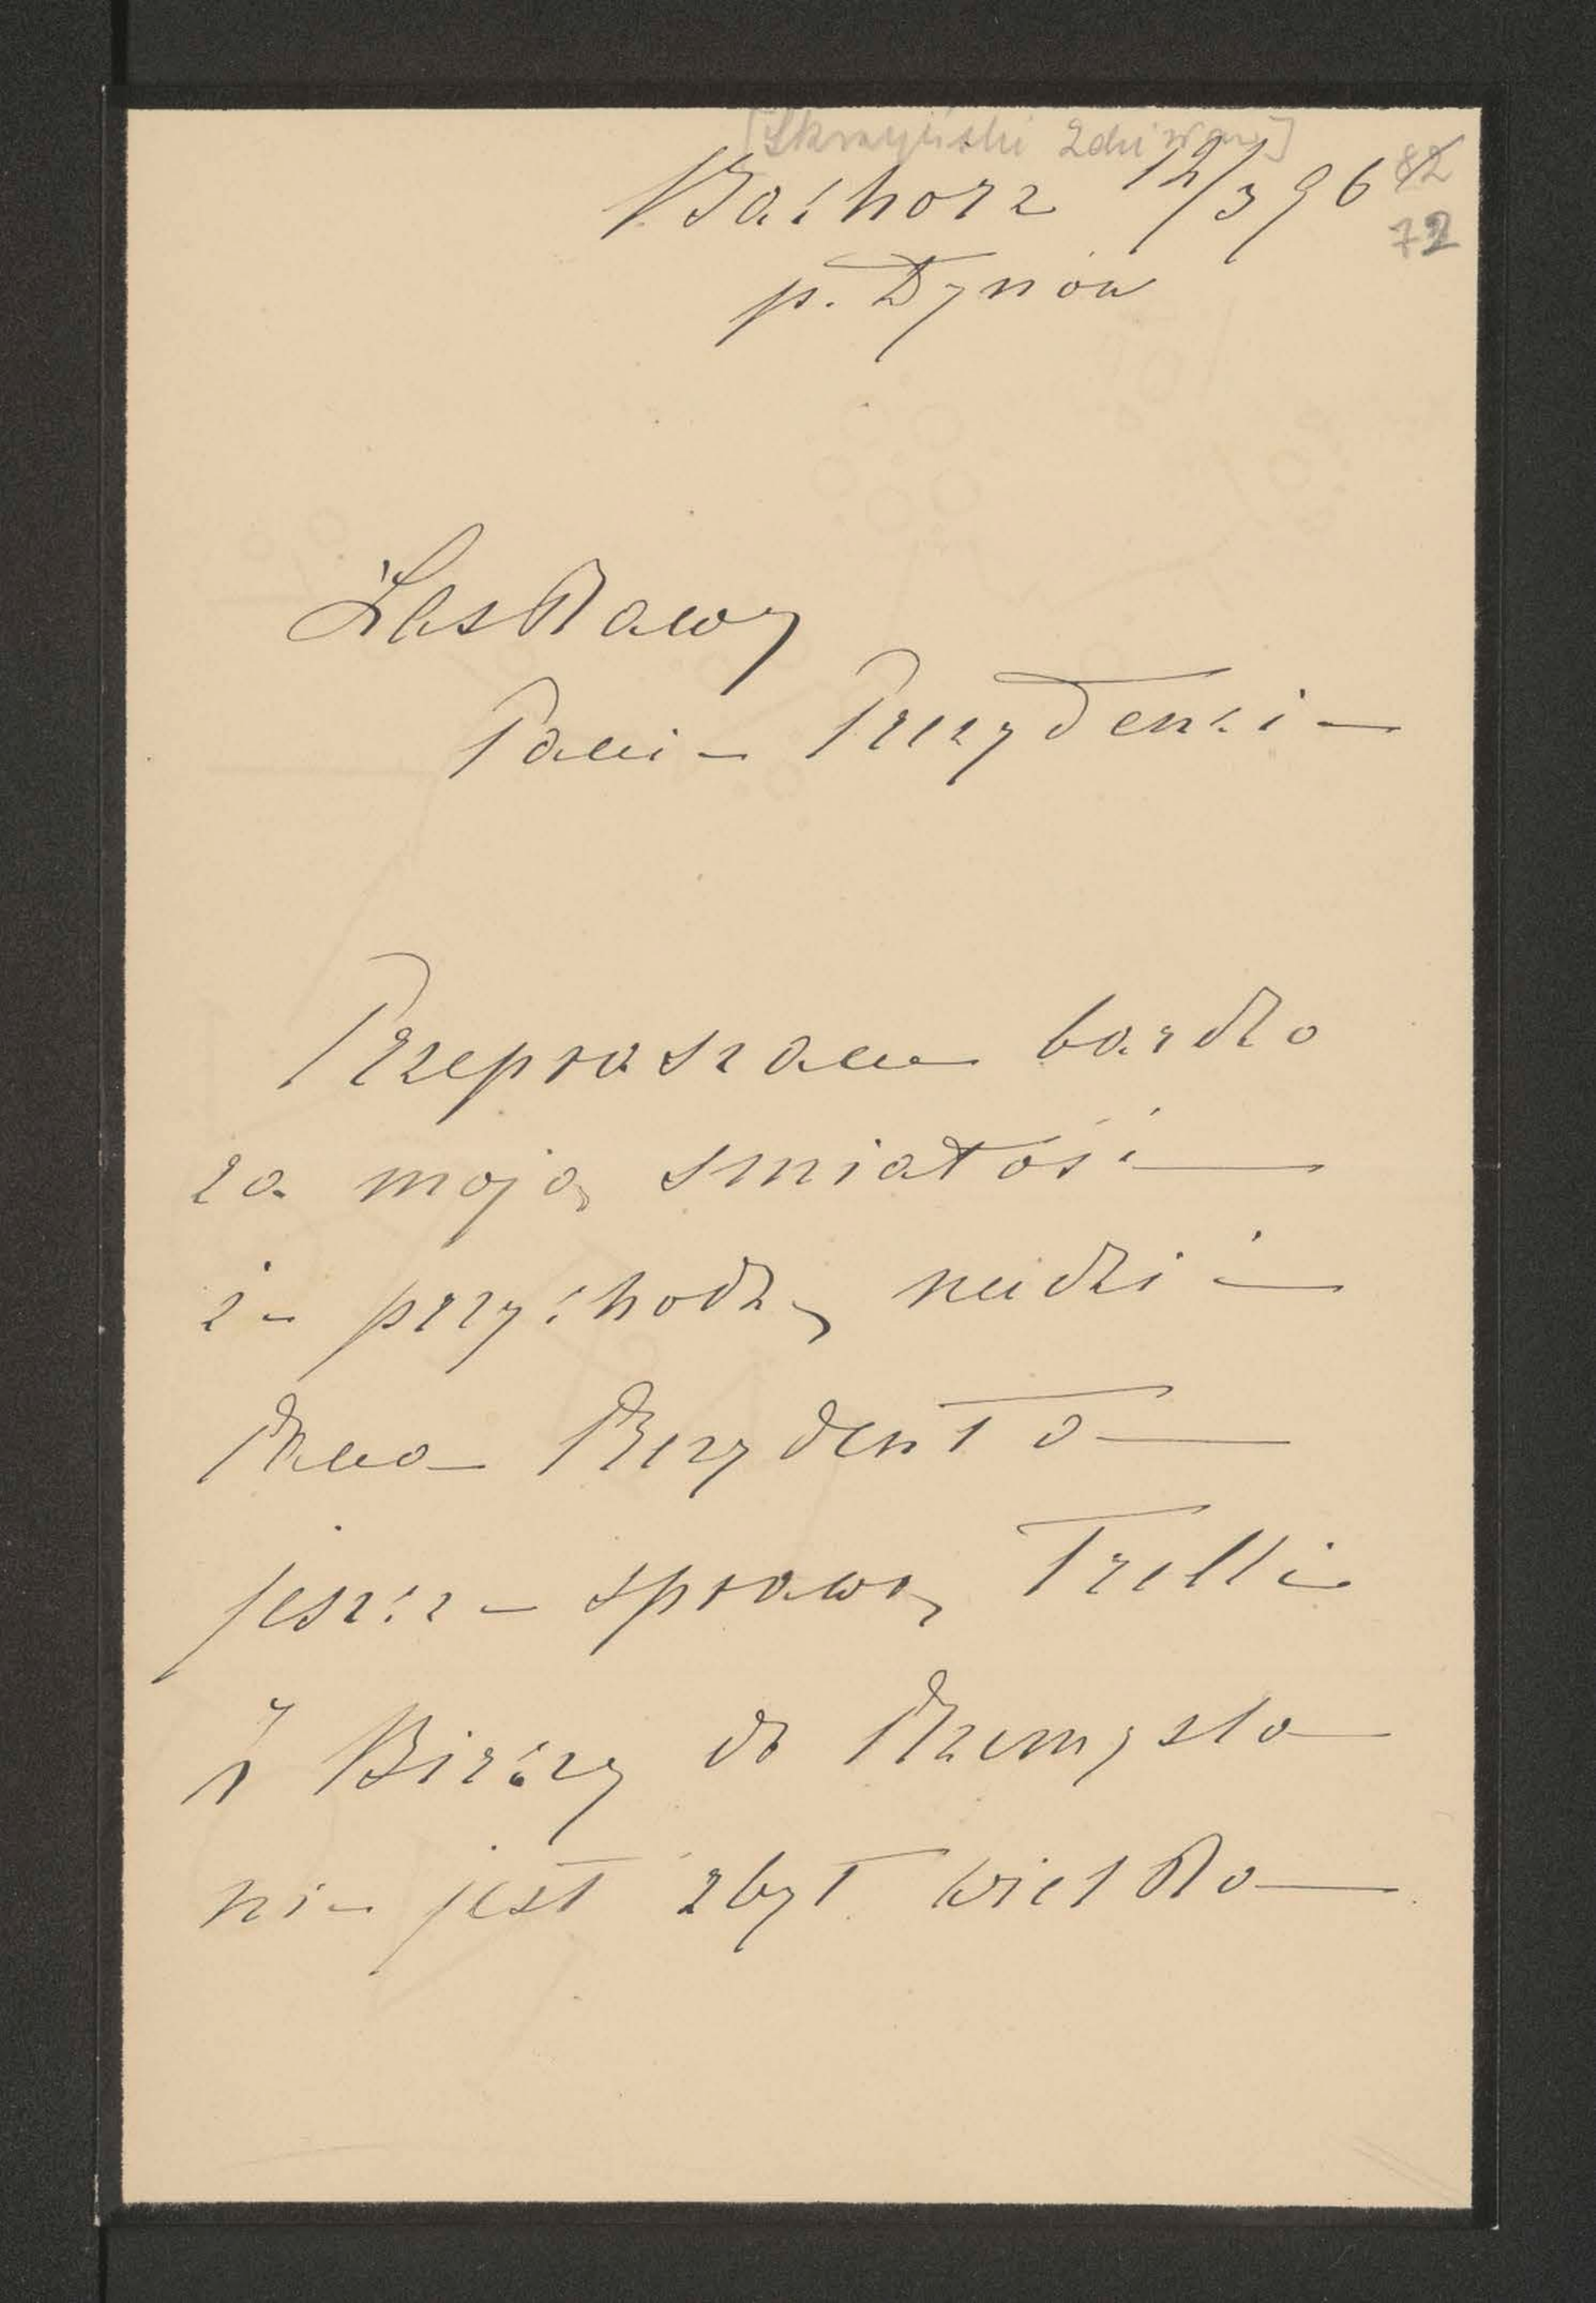 [Skrzyński Zdzisław]
Bachórz 12/3 96 82
72
p. Dynów
Łaskawy
Panie Prezydencie
Przepraszam bardzo
za moją śmiałość
że przychodzę nudzić
Pana Prezydenta
jeszcze sprawą
z Birczy do Przemyśla
nie jest zbyt wielka